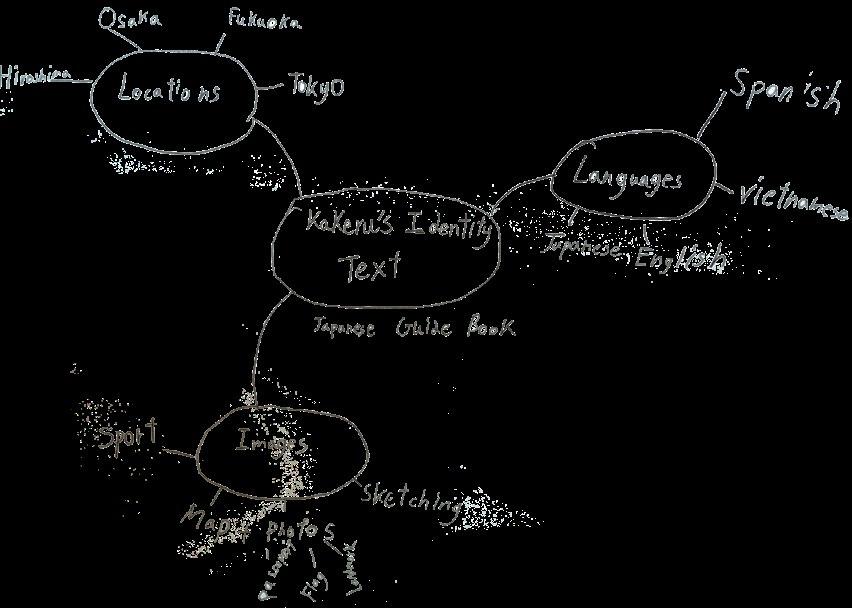 Osaka
Fukuoka
Hiroshima
Locations
Tokyo
Spanish
Languages
Vietnamese
Japanese
English
Kakeru's Identity
Text
Japanese Guide Book
Images
Sport
Sketching
Maps
Photos
Flag